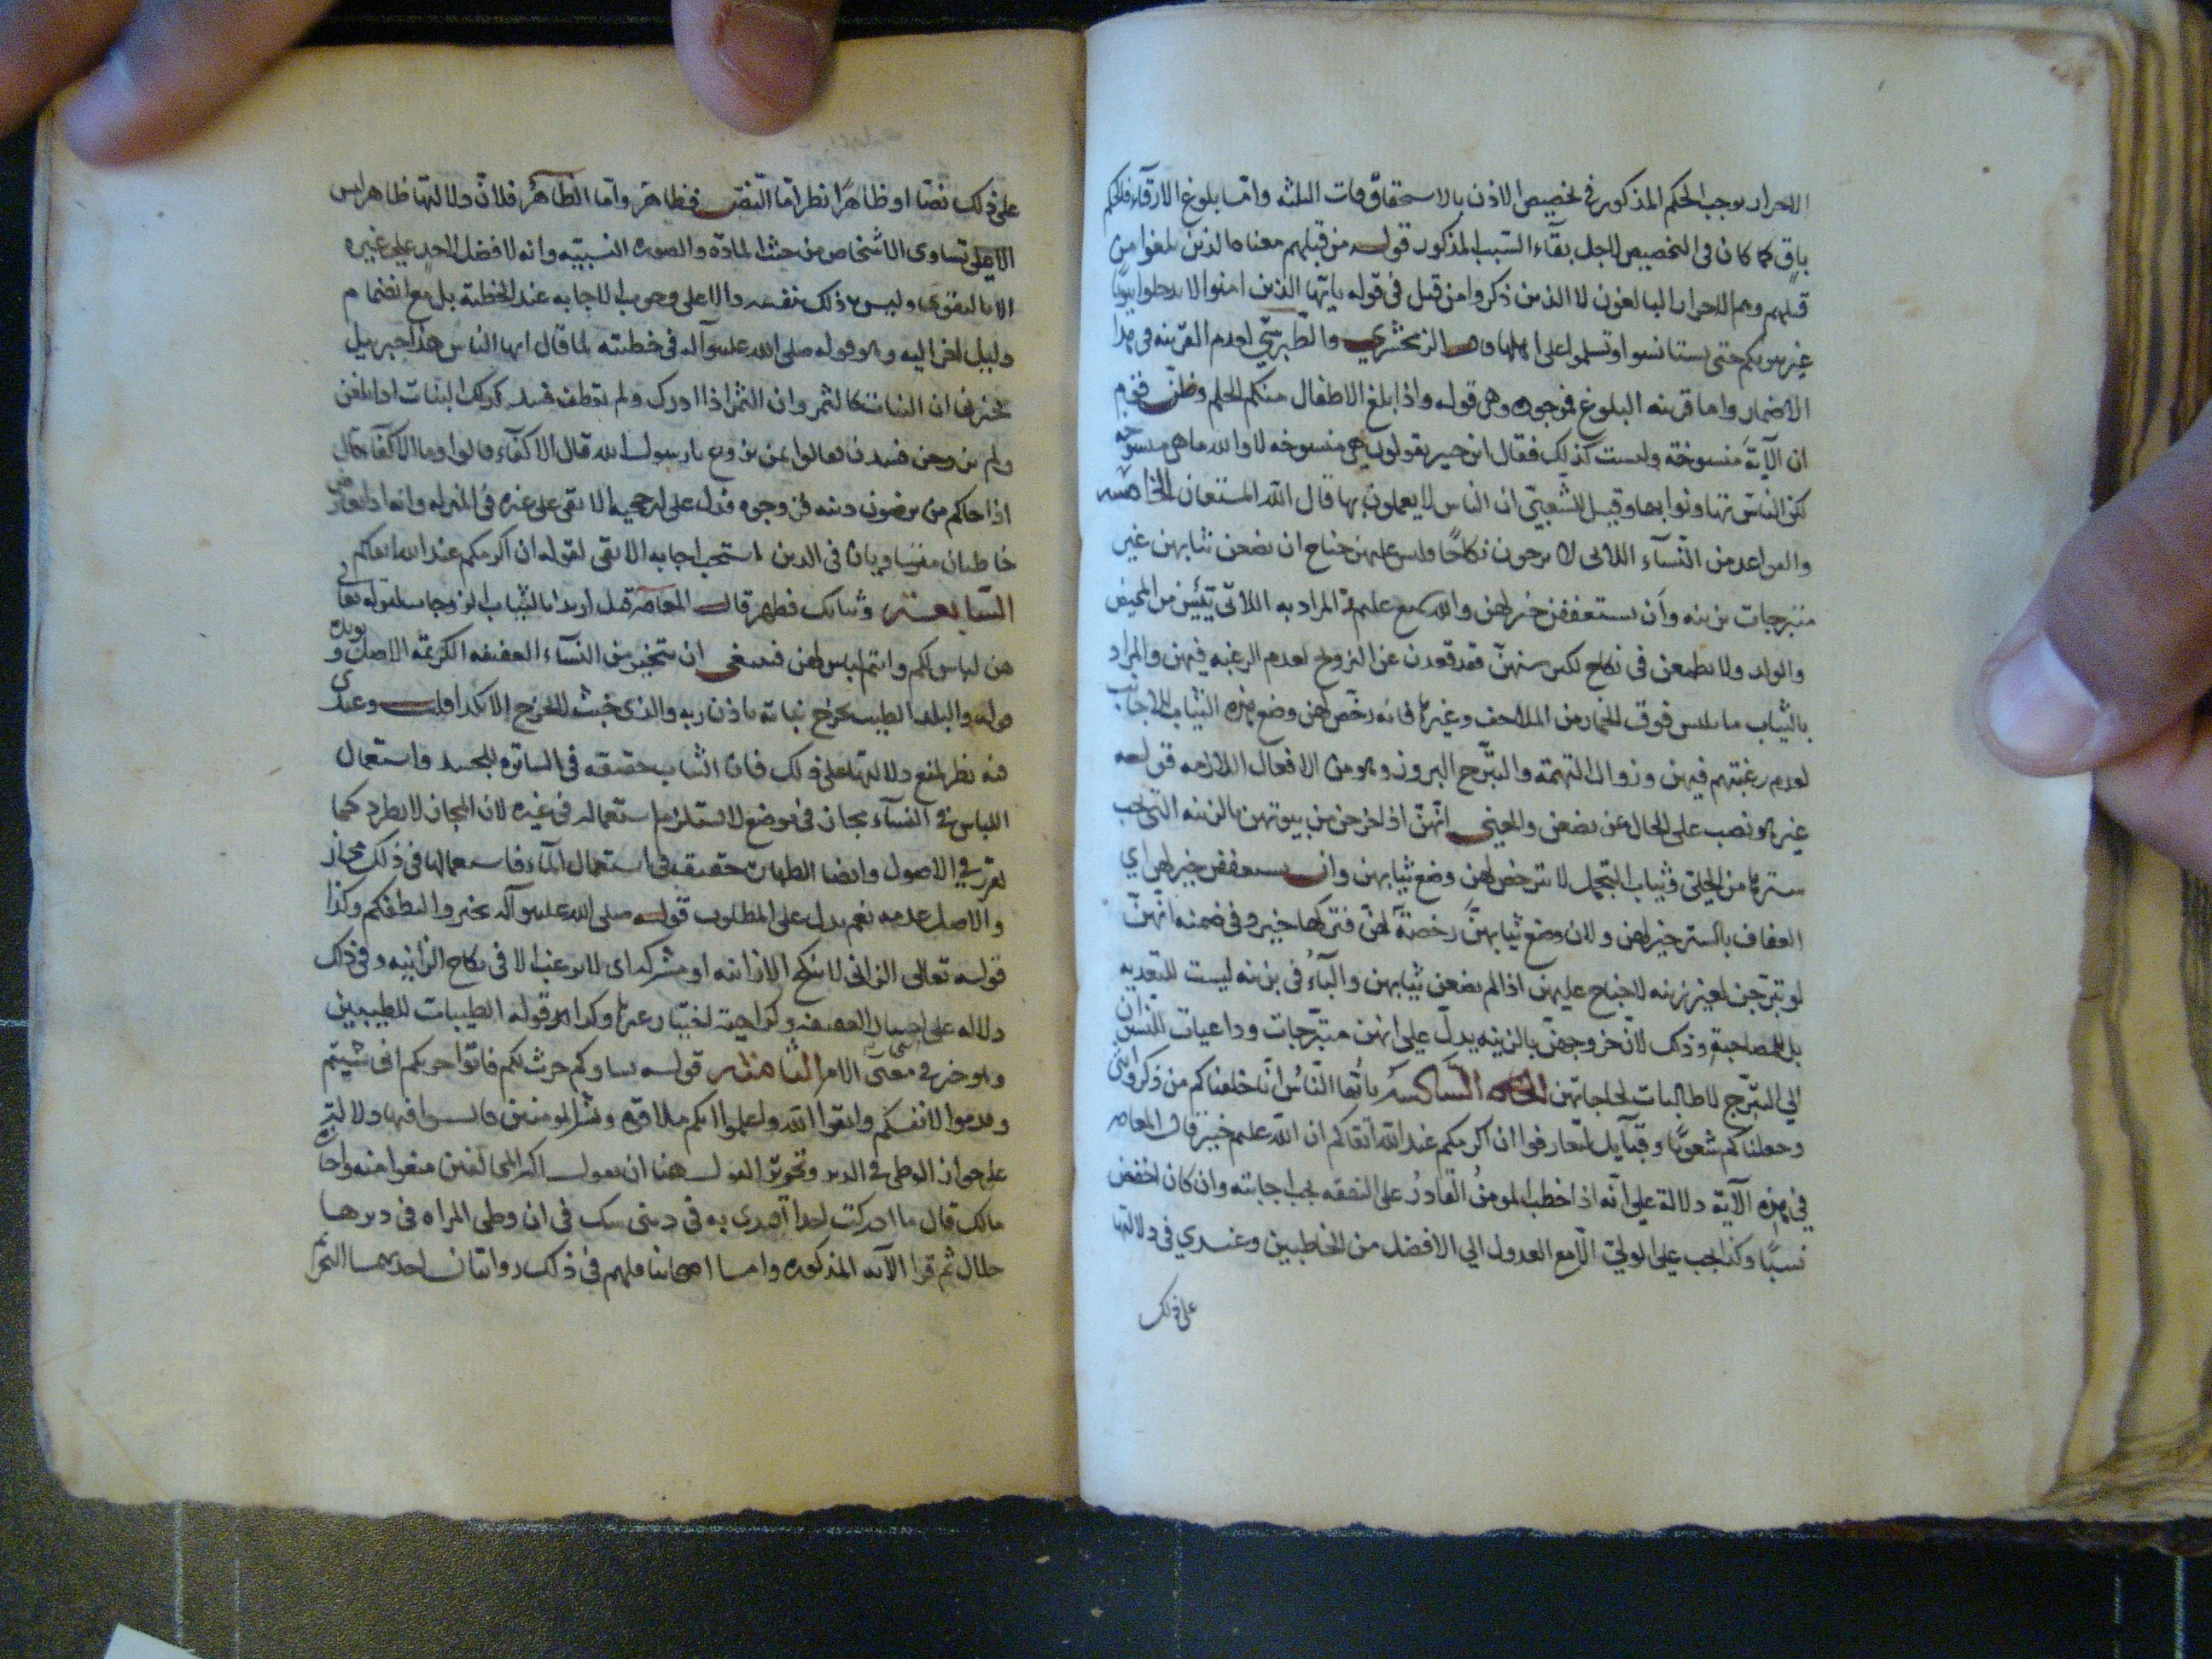 الاحرار يوجب الحكم المذكور في تخصيص الاذن بالاستحقاق وات الثلثه واما بلوغ الارقاء فالحكم
باق كما كان في التخصيص لاجل بقاء السبب المذكور قوله من قبلهم معناه الذين بلغوا من
قبلهم وهم الاحرار البالغون لا الذين ذكروا من قبل في قوله يا ايها الذين امنوا لا تدخلوا بيوتا
غير بيوتكم حتى تستانسوا وتسلموا على اهلها الزمخشري والطبرسي لعدم القرينه في هذا
الاضمار واما قرينه البلوغ فموجوده وهي قوله واذا بلغ الاطفال منكم الحلم وظن قوم
ان الآية منسوخة وليست كذلك فقال ابن جبير يقولون هي منسوخه لا والله ما هي منسوخه
لكن الناس تهاونوا بها وقيل للشعبي ان الناس لا يعملون بها قال الله المستعان الخامسه
والقواعد من النسآء اللاتى لا يرجون نكاحًا فليس عليهن جناح ان يضعن ثيابهن غير
متبرجات بزينه وان يستعففن خير لهن والله سميع عليم المراد به اللاتى يئسن من المحيض
والولد ولا يطمعن في نكاح لكبر سنهن فقد قعدن عن التزويج لعدم الرغبه فيهن والمراد
بالثياب ما يلبس فوق الخمار من الملاحف وغيرها فانه رخص لهن وضع هذه الثياب للاجانب
لعدم رغبتهم فيهن وزوال التهمة والتبرج البروز وهو من الافعال اللازمه قوله
غير هو نصب على الحال من يضعن والمعنى انهن اذا خرجن من بيوتهن بالزينه التي يجب
سترها من الحلى وثياب التجمل لا ترخص لهن وضع ثيابهن وان يستعففن خير لهن اي
العفاف بالستر خير لهن ولان وضع ثيابهن رخصة لهن فتركها خير وفي ضمنه انهن
لو تبرجن لغير زينه لا جناح عليهن اذا لم يضعن ثيابهن والبآء في بزينه ليست للتعديه
بل للمصاحبة وذلك لان خروجهن بالزينه يدل على انهن متبرجات وداعيات للناس
الى التبرج لا طالبات لحاجاتهن السادسه يا ايها الناس انا خلقناكم من ذكر وانثى
وجعلناكم شعوبًا وقبآيل لتعارفوا ان اكرمكم عند الله اتقاكم ان الله عليم خبير قال المعاصر
في هذه الآية دلالة على انه اذا خطب المومن القادر على النفقه يجب اجابته وان كان اخفض
نسبًا وكذا يجب على الولي الا مع العدول الى الافضل من الخاطبين وعندي في دلالتها
على ذلك
على ذلك نصًا او ظاهرًا نظر اما النص فظاهر واما الظاهر فلان دلالتها ظاهرا ليس
الا على تساوى الاشخاص من حيث المادة والصوره النسبيه وانه لا فضل لاحد على غيره
الا بالتقوى وليس ذلك نفسه دالا على وجوب الاجابه عند الخطبة بل مع انضمام
دليل اخر اليه وهو قوله صلى الله عليه وآله في خطبته لما قال ايها الناس هذا جبرئيل
يخبرني ان البنات كالثمر وان الثمر اذا ادرك ولم يقطف فسد كذلك البنات اذا بلغن
ولم يزوجن فسدن فقالوا بمن نزوج يا رسول الله قال الاكفاء قالوا وما الاكفاء قال
اذا جاكم من ترضون دينه فزوجوه فدل على ارجحيه الاتقى على غيره في المنزله وانه اذا تعارض
خاطبان متساويان في الدين استحب اجابه الاتقى لقوله ان اكرمكم عند الله اتقاكم
السابعه وثيابك فطهر قال المعاصر قيل اريد بالثياب الزوجات لقوله تعالى
هن لباس لكم وانتم لباس لهن فينبغى ان يتخير من النسآء العفيفه الكريمة الاصل ويويده
قوله والبلد الطيب يخرج نباته باذن ربه والذى خبث لا يخرج الا نكدا قلت وعندى
فيه نظر لمنع دلالتها على ذلك فان الثياب حقيقه في الساتره للجسد واستعمال
اللباس في النسآء مجاز في موضع لا يستلزم استعماله في غيره لان المجاز لا يطرد كما
تقرر في الاصول وايضا الطهارة حقيقه في استعمال المآء فاستعمالها في ذلك مجاز
والاصل عدمه نعم يدل على المطلوب قوله صلى الله عليه وآله تخيروا لنطفكم وكذا
قوله تعالى الزانى لا ينكح الا زانيه او مشركه اى لا يرغب الا في نكاح الزانيه وفي ذلك
دلاله على اختيار العفيفه وكراهية اختيار غيرها وكذا قوله الطيبات للطيبين
وهو خبر في معنى الامر الثامنه قوله نساوكم حرث لكم فاتوا حرثكم انى شيتم
وقدموا لانفسكم واتقوا الله واعلموا انكم ملاقوه وبشر المومنين
على جواز الوطى في الدبر وتحرير القول هنا ان نقول اكثر المخالفين منعوا منه واجازه
مالك قال ما ادركت احدا اقتدى به في دينى يشك في ان وطى المراه في دبرها
حلال ثم قرا الآيه المذكوره واما اصحابنا فلهم في ذلك روايتان احديهما التحريم